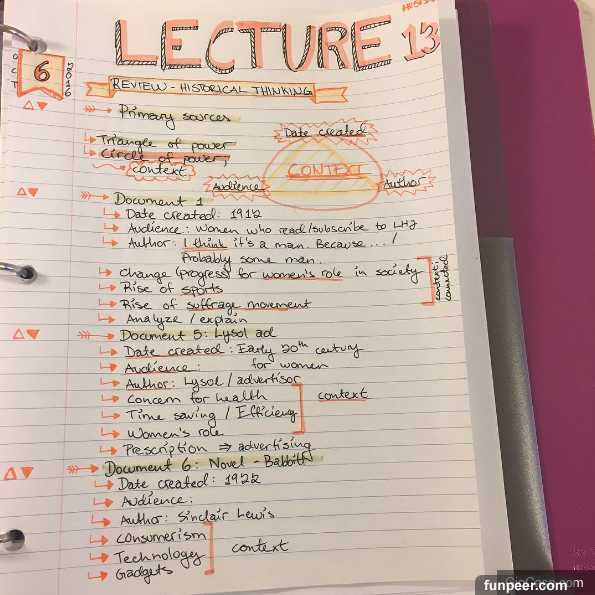 LECTURE 13
OCT 6 2016
REVIEW - HISTORICAL THINKING
Primary sources
Triangle of power
Circle of power,
context
Date created
CONTEXT
Audience
Author
Document 1
Date created: 1912
Audience: Women who read/subscribe to LHJ
Author: I think it's a man. Because... /
Probably some man.
change (progress) for women's role in society
Rise of sports
Rise of suffrage movement
context
Analyze / explain
Document 5: Lysol ad
Date created: Early 20th century
Audience: for women
Author: Lysol / advertisor
Concern for health
Time saving / Efficiency
context
Women's role
Prescription ⇒ advertising
Document 6: Novel - Babbitt
Date created: 1922
Audience:
Author: Sinclair Lewis
consumerism
Technology
context
Gadgets
funpeer.com